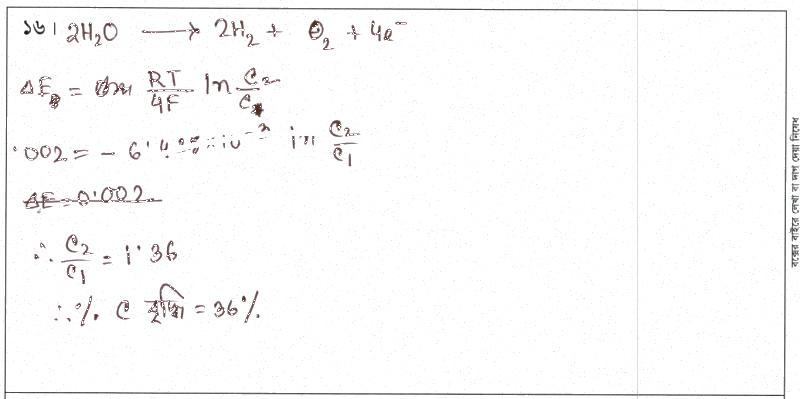 ১৬। 2H₂O ⟶ 2H₂ + O₂ + 4e⁻
ΔE = RT/4F ln C₂/C
·002 = - 6·4 ×10 ln C₂/C₁
ΔE = 0·002
∴ C₂/C₁ = 1·36
∴ % C বৃদ্ধি = 36%
বক্সের বাইরে লেখা বা দাগ দেয়া নিষেধ